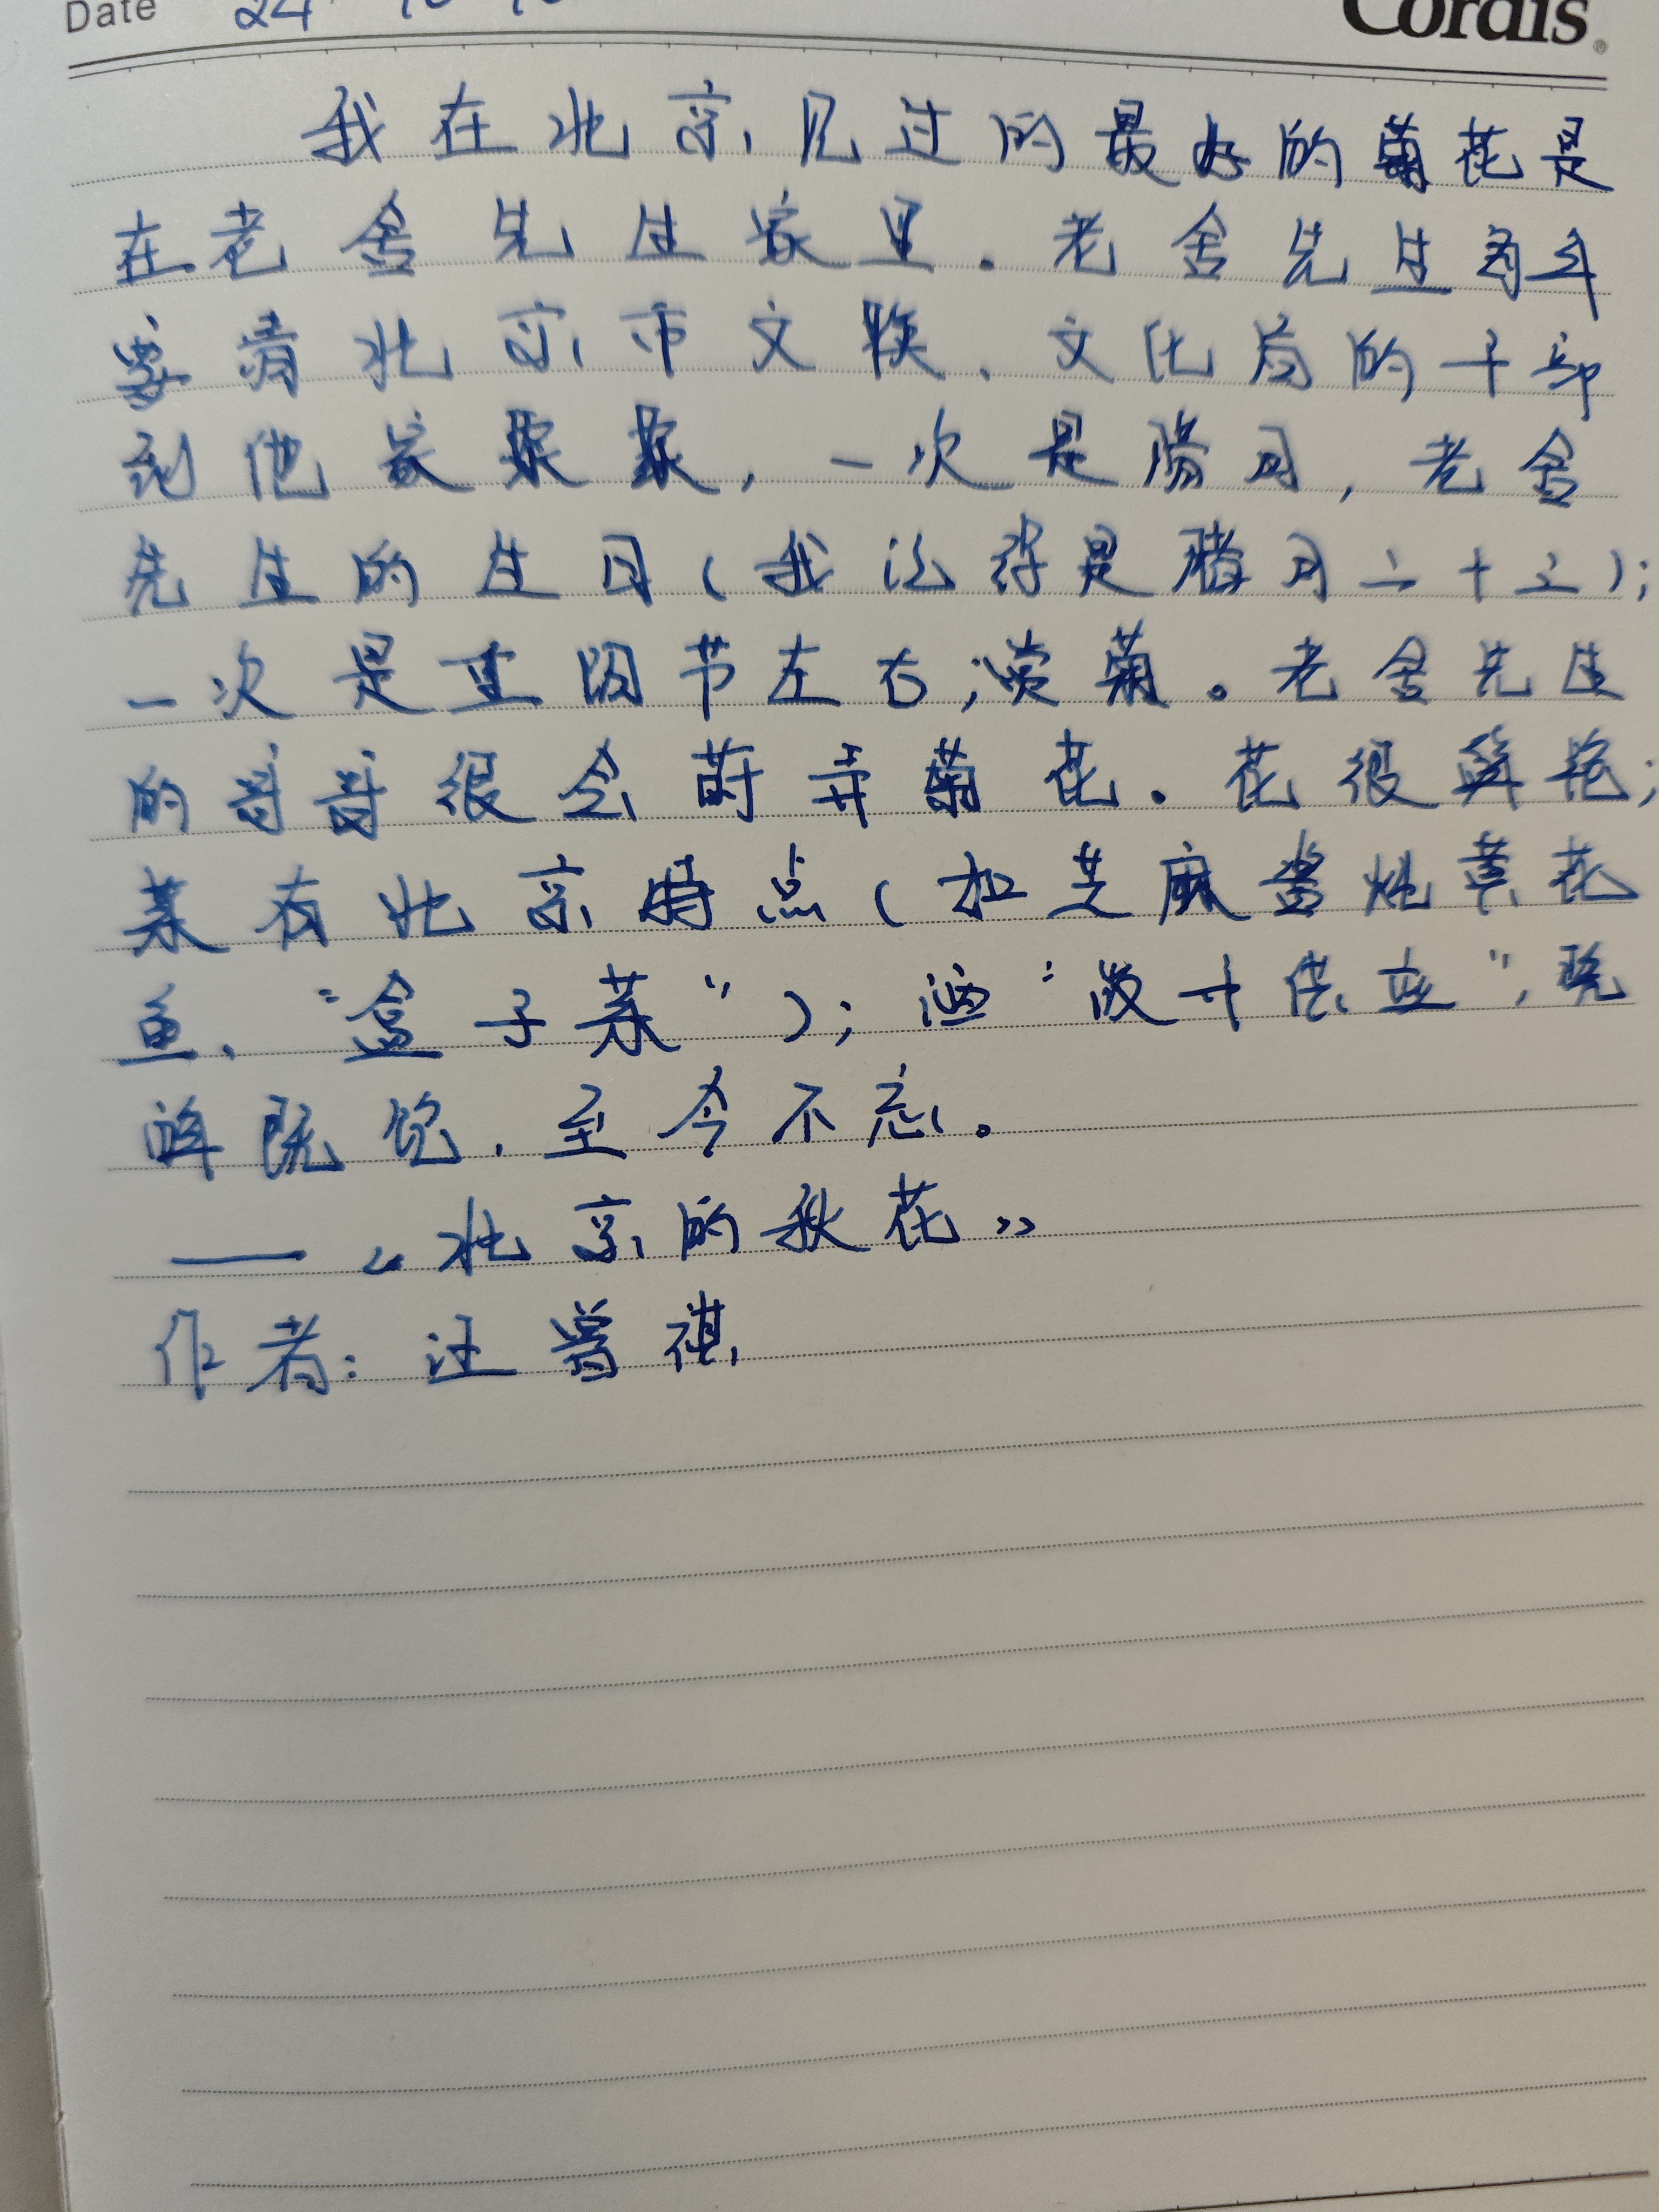 Date 24
Cordis
我在北京见过的最好的菊花是
在老舍先生家里。老舍先生每年
要请北京市文联、文化局的干部
到他家聚聚,一次是腊月,老舍
先生的生日(我记得是腊月二十三);
一次是重阳节左右,赏菊。老舍先生
的哥哥很会莳弄菊花。花很鲜艳;
菜有北京特点(如芝麻酱炖黄花
鱼、“盒子菜”);酒“敞开供应”,既
醉既饱,至今不忘。
——《北京的秋花》
作者:汪曾祺